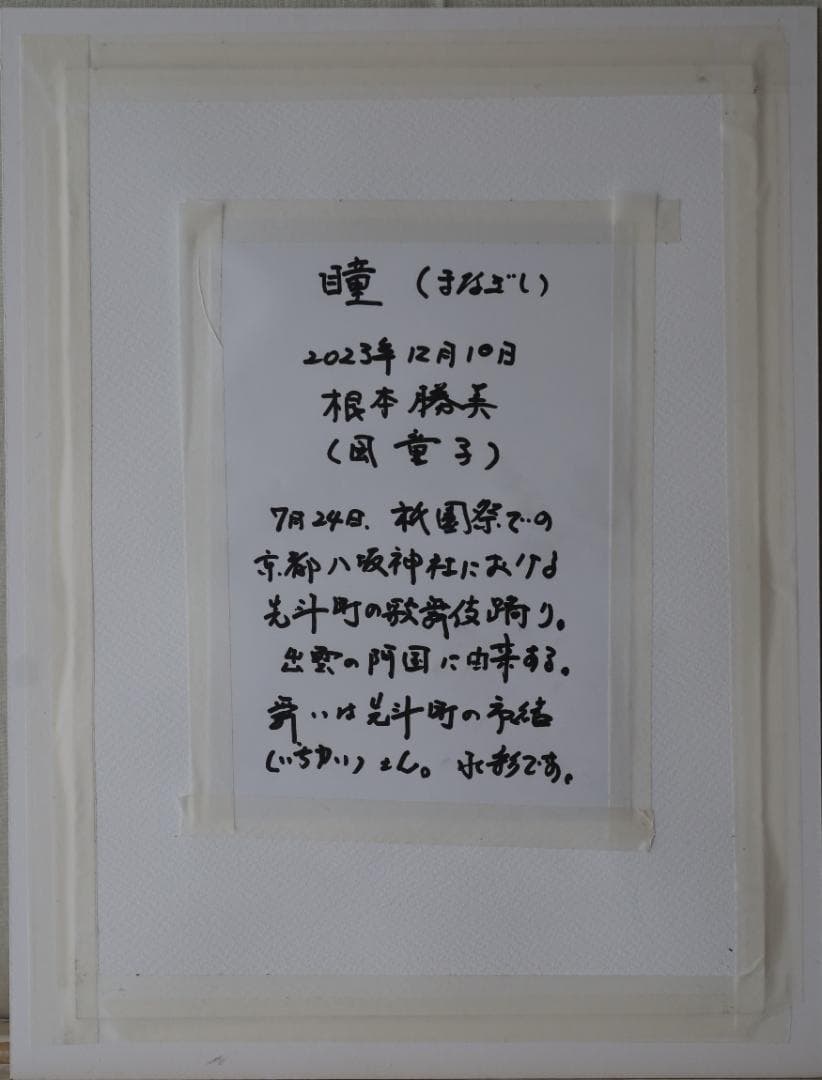 瞳 (まなざし)
2023年12月10日
根本勝美
(風童子)
7月24日、祇園祭での
京都八坂神社における
先斗町の歌舞伎踊り。
出雲の阿国に由来する。
舞いは先斗町の市結
(いちゆい)さん。水彩です。